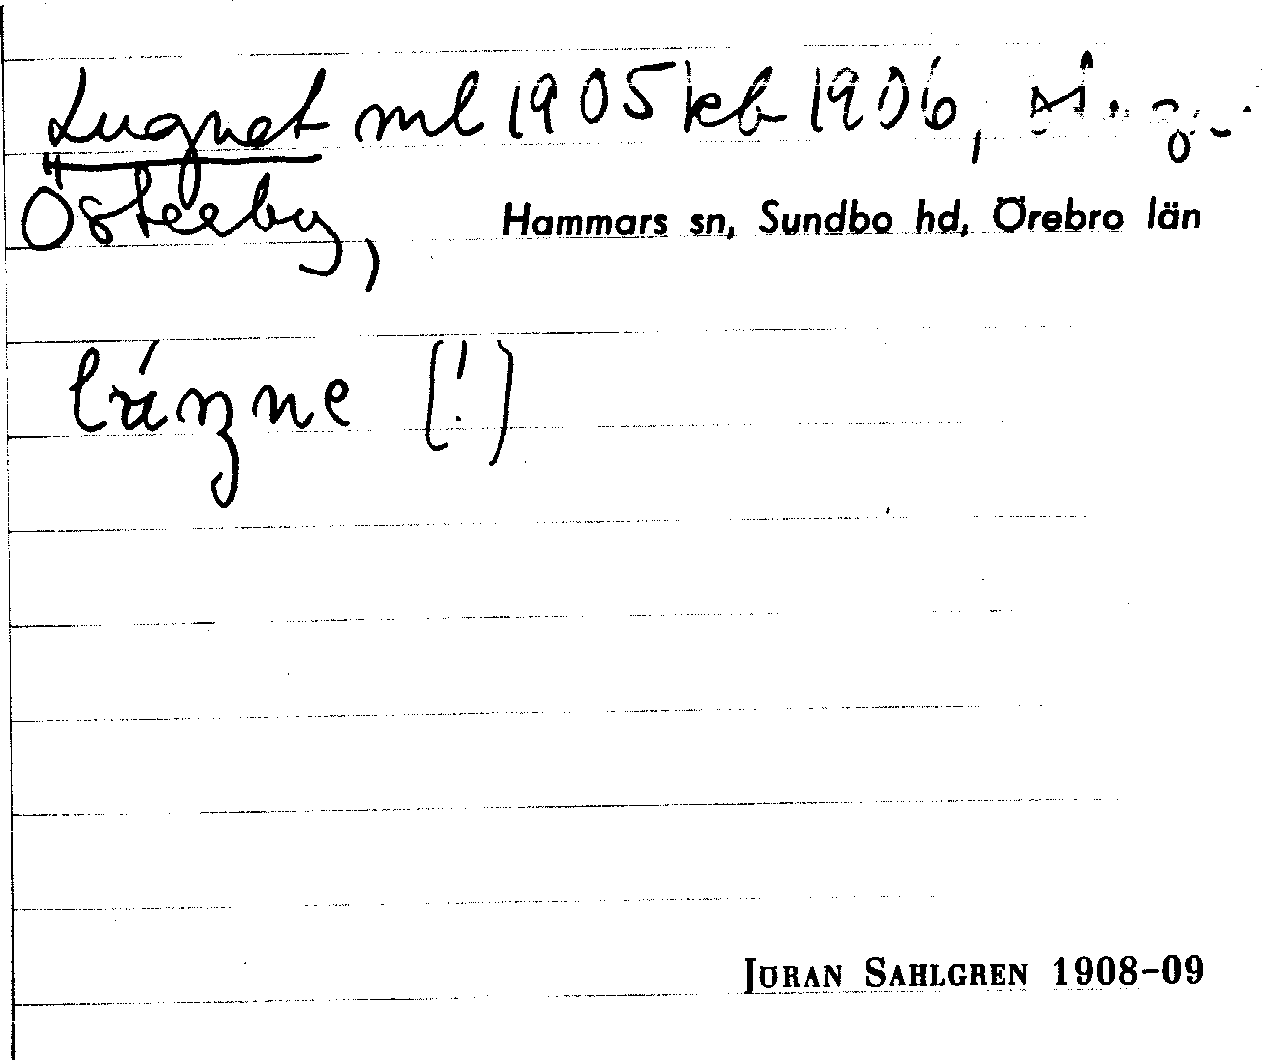 Lugnet ml 1905 kb 1906,
Österby,
Hammars sn, Sundbo hd, Örebro län
(!)
JÖRAN SAHLGREN 1908-09